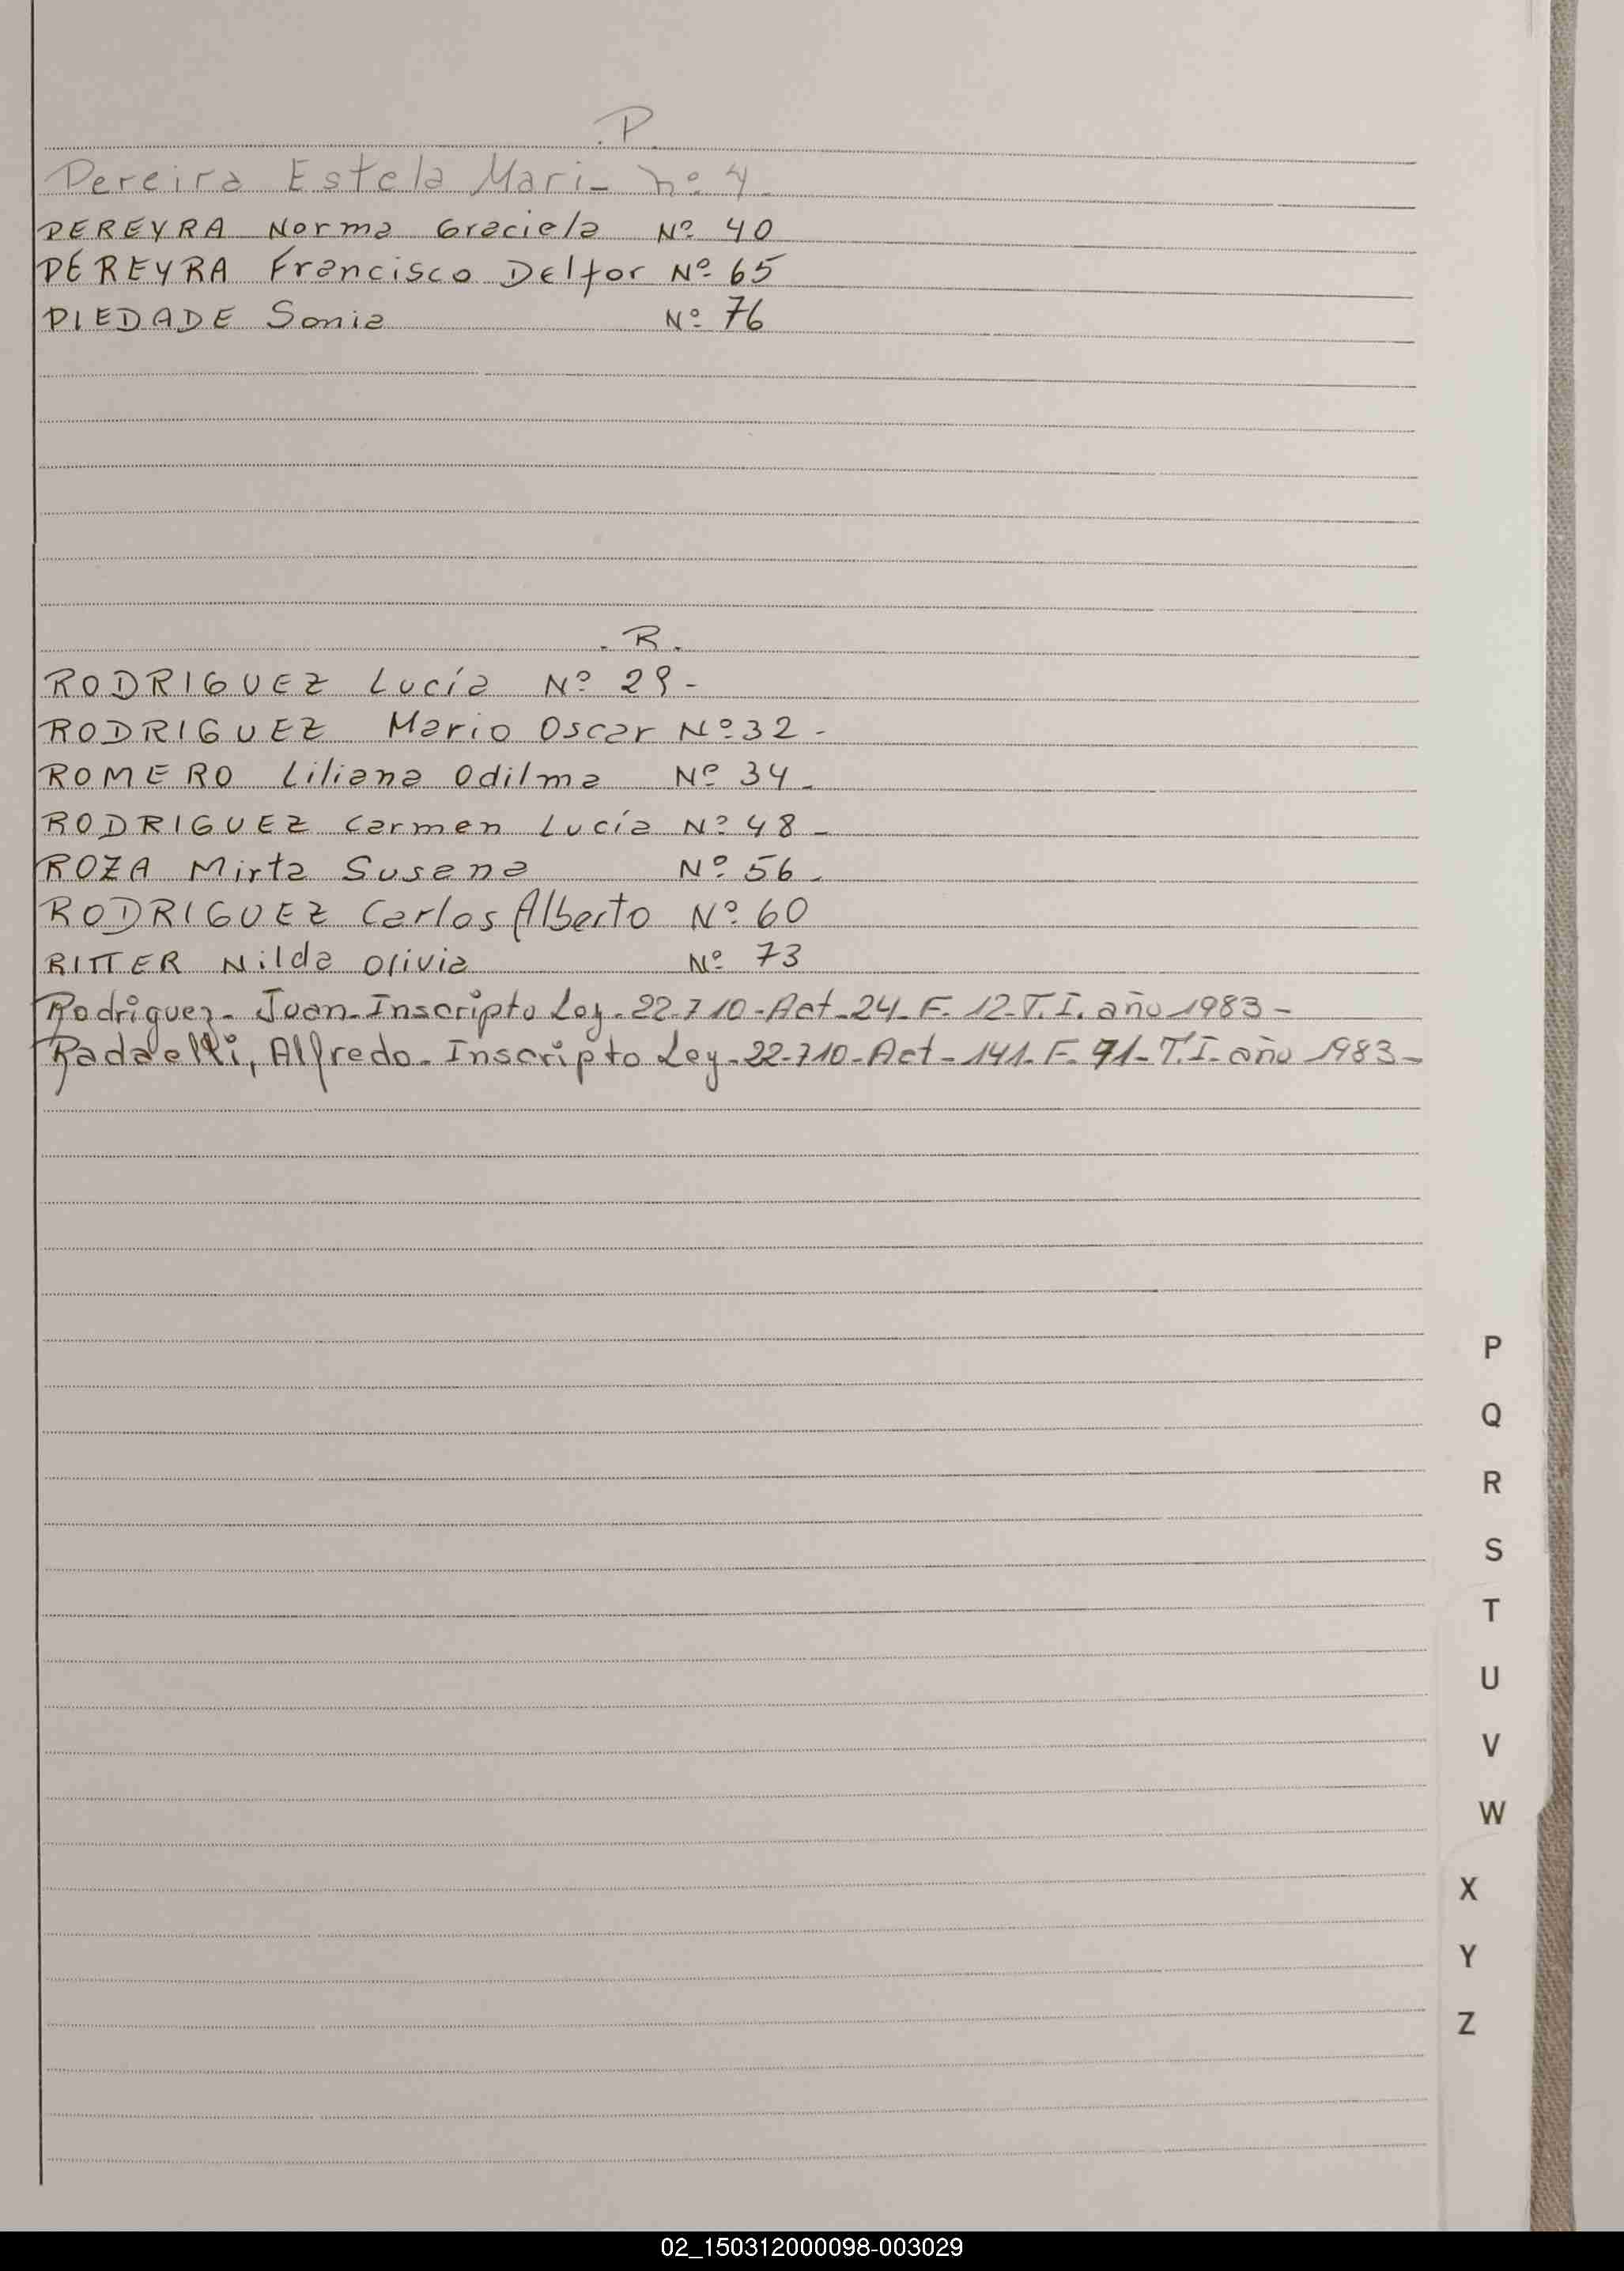 .P.
Pereira Estela Mari- nº 4-
PEREYRA Norma Graciela Nº 40
PEREYRA Francisco Delfor Nº 65
PIEDADE Sonia Nº 76
.R.
RODRIGUEZ Lucía Nº 29-
RODRIGUEZ Mario Oscar Nº 32-
ROMERO Liliana Odilma Nº 34-
RODRIGUEZ Carmen Lucía Nº 48-
ROZA Mirta Susana Nº 56-
RODRIGUEZ Carlos Alberto Nº 60
RITTER Nilda Olivia Nº 73
Rodriguez- Juan-Inscripto Ley-22.710-Act-24-F-12-T.I. año 1983-
Radaelli, Alfredo-Inscripto Ley-22-710-Act-141-F-71-T.I-año 1983-
P
Q
R
S
T
U
V
W
X
Y
Z
02_150312000098-003029